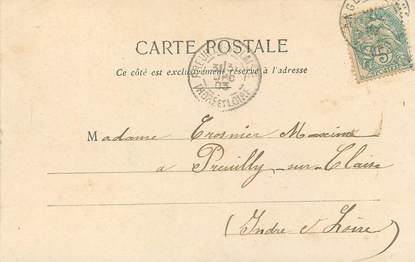 CARTE POSTALE
Ce côté est exclusivement réservé à l'adresse
INDRE ET LOIRE
5
Madame Trosnier Maxime
a Preuilly-sur-Claise
(Indre et Loire)